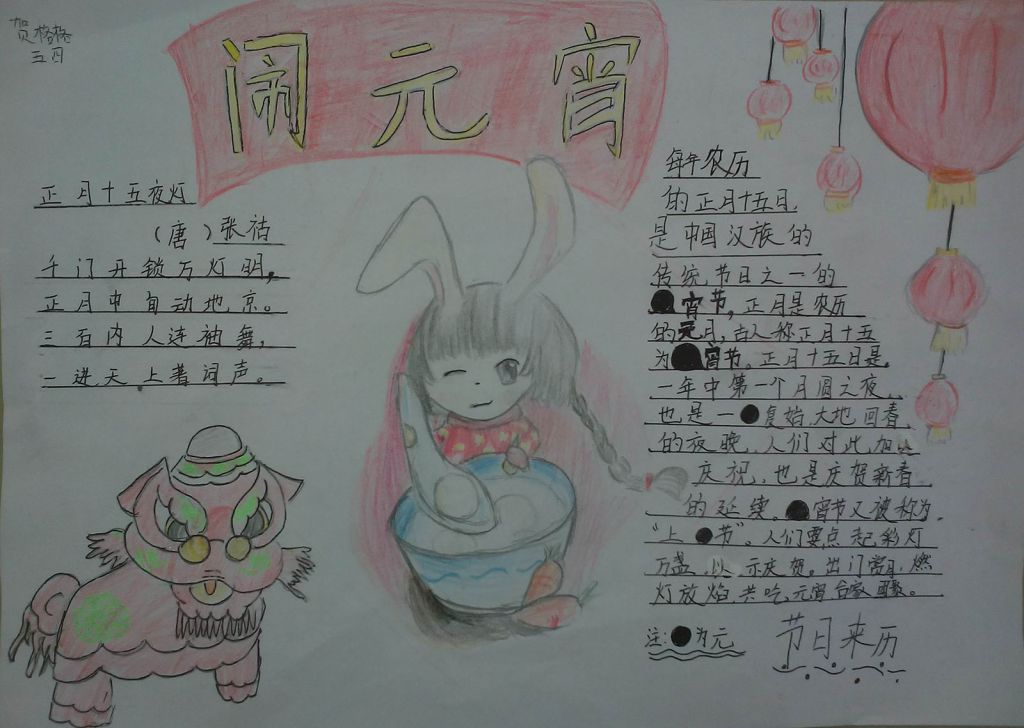 贺格格
三四
闹元宵
正月十五夜灯
（唐）张祜
千门开锁万灯明，
正月中旬动地京。
三百内人连袖舞，
一进天上著词声。
每年农历
的正月十五日
是中国汉族的
传统节日之一的
●宵节，正月是农历
的元月，古人称正月十五
为●宵节。正月十五日是
一年中第一个月圆之夜，
也是一●复始，大地回春
的夜晚，人们对此，加以
庆祝，也是庆贺新春
的延续。●宵节又被称为
“上●节”。人们要点起彩灯
万盏，以示庆贺。出门赏月，燃
灯放焰，共吃元宵合家
注：●为元
节日来历